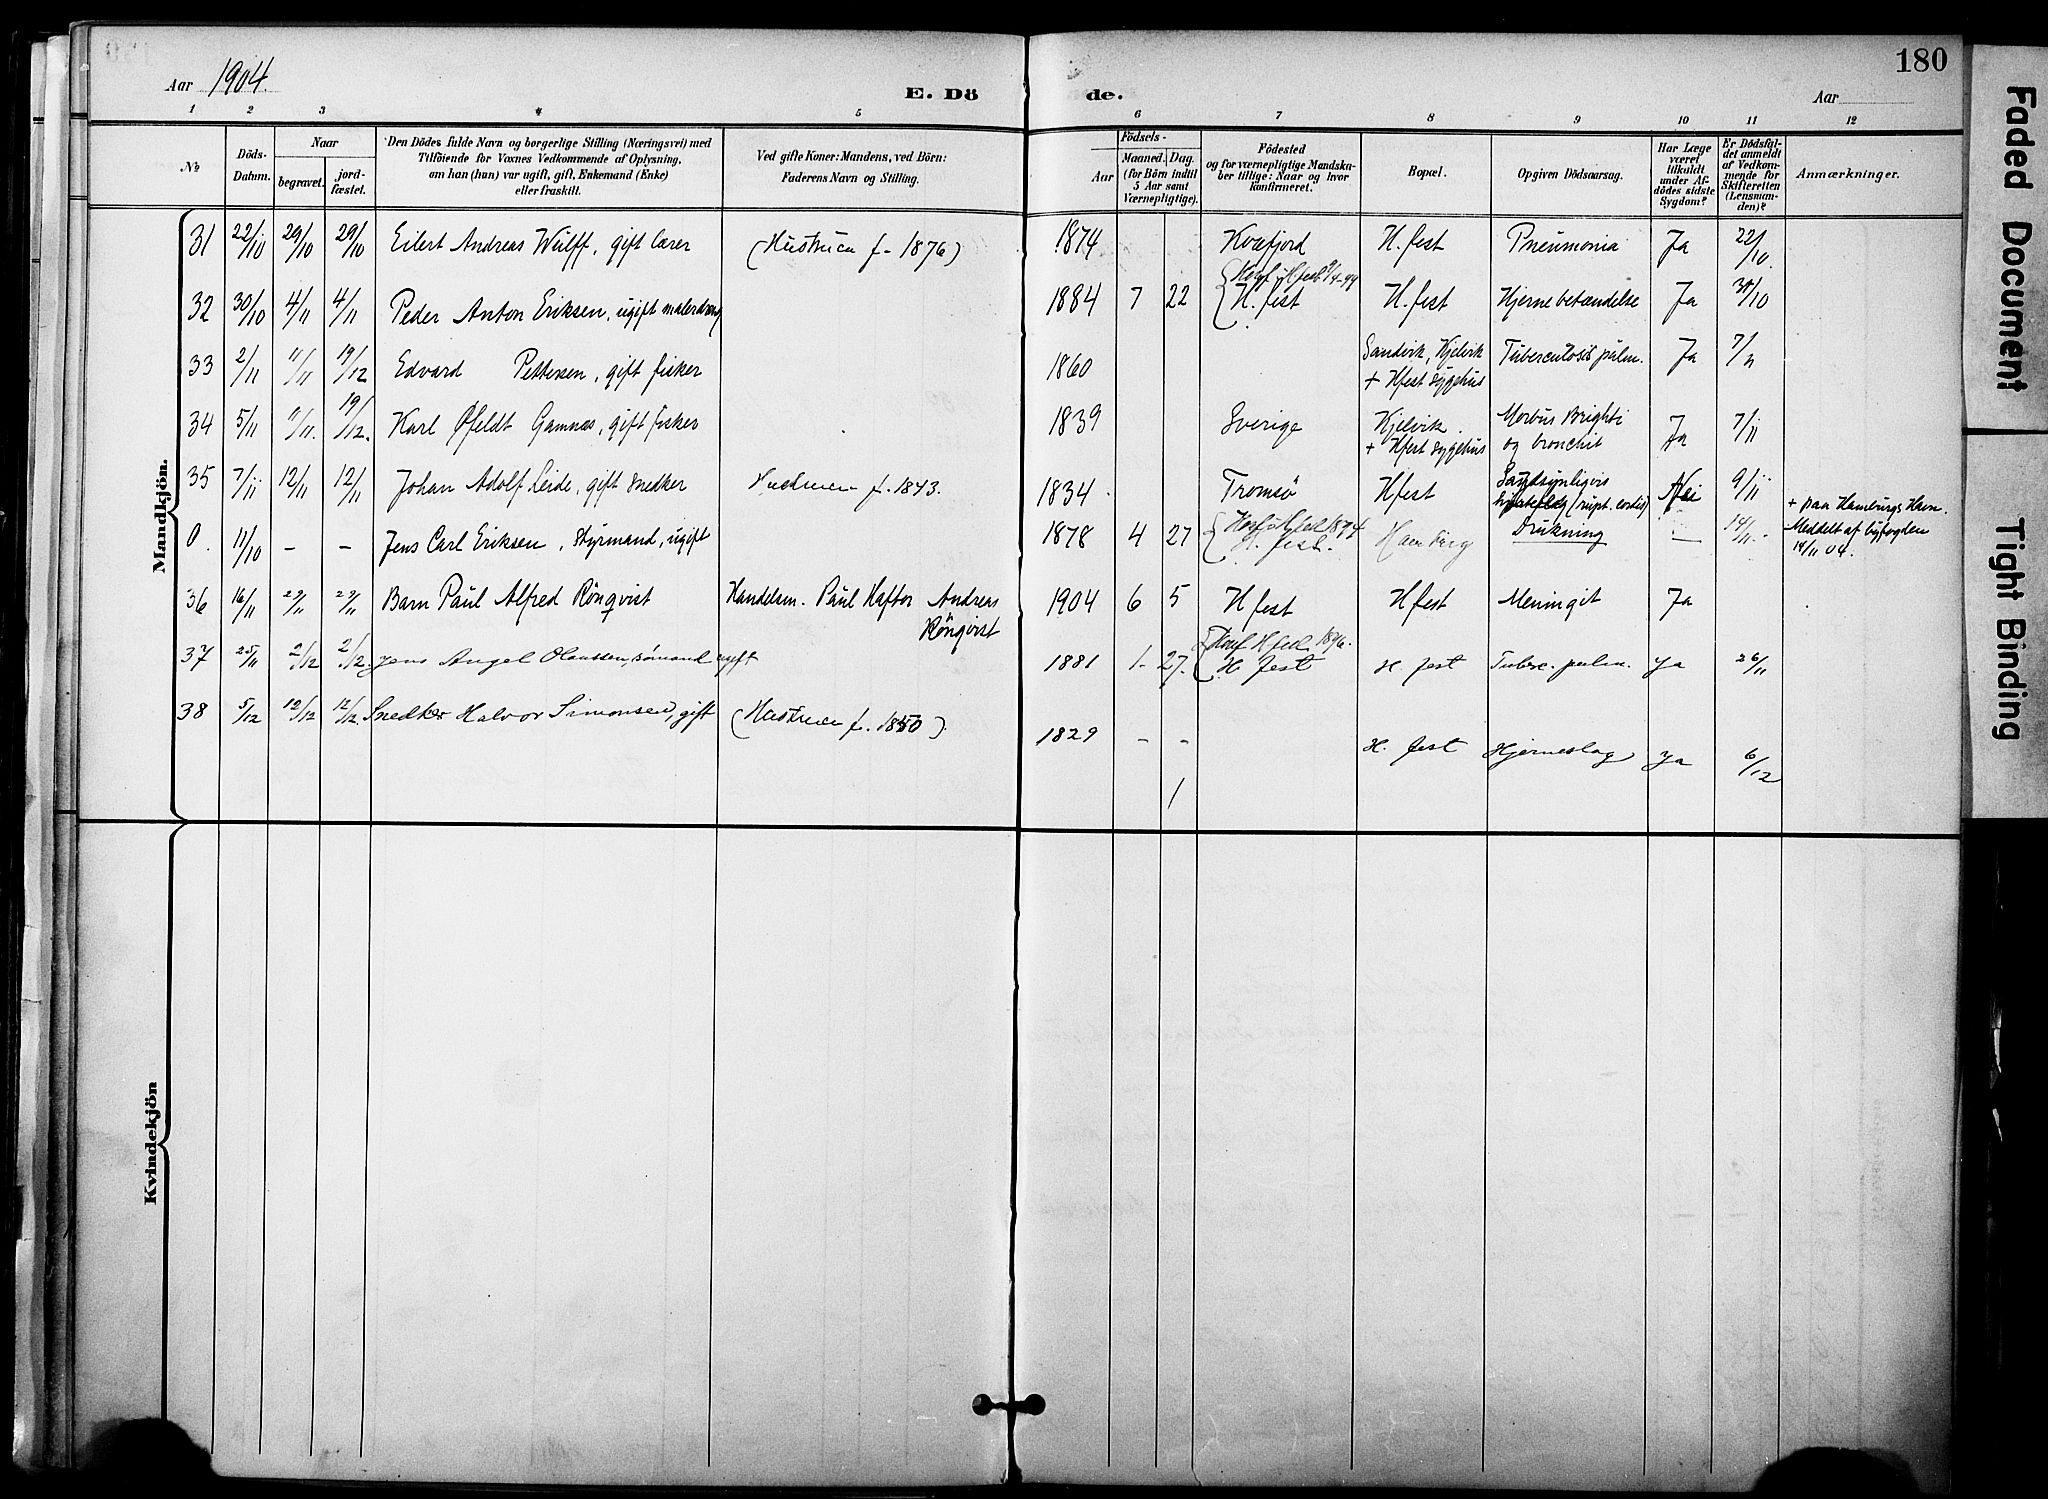 180
Aar 1904.
E. Döde.
Aar
1 2 3 4 5 6 7 8 9 10 11 12
No
Döds-Datum.
Naar
begravet.
jord-fæstet.
Den Dödes fulde Navn og borgerlige Stilling (Næringsvei) med
Tilföiende for Voxnes Vedkommende af Oplysning,
om han (hun) var ugift, gift, Enkemand (Enke)
eller fraskilt.
Ved gifte Koner: Mandens, ved Börn:
Faderens Navn og Stilling.
Födsels-
Aar
Maaned. Dag.
(for Börn indtil
5 Aar samt
Værnepligtige).
Födested
og for værnepligtige Mandska-
ber tillige: Naar og hvor
konfirmeret.
Bopæl.
Opgiven Dödsaarsag.
Har Læge
været
tilkaldt
under Af-
dödes sidste
Sygdom?
Er Dödsfal-
det anmeldt
af Vedkom-
mende for
Skifteretten
(Lensman-
den)?
Anmærkninger.
Mandkjön.
31 22/10 29/10 29/10 Eilert Andreas Wulff, gift lærer (Hustruen f. 1876) 1874 Kvæfjord H.fest Pneumonia Ja 22/10.
32 30/10 4/11 4/11 Peder Anton Eriksen, ugift malerdreng 1884 7 22 H.fest H.fest Hjernebetændelse Ja 30/10
33 2/11 11/11 19/12 Edvard Pettersen, gift fisker 1860 Sandvik, Kjelvik + Hfest sygehus Tuberculosis pulm. Ja 7/11
34 5/11 11/11. 19/12. Karl Ofeldt Gamnæs, gift fisker 1839 Sverige Kjelvik. + Hfest sygehus Morbus Brighti og bronchit Ja 7/11
35 7/11 12/11 12/11 Johan Adolf Leide, gift snedker Hustruen f. 1843. 1834 Tromsö Hfest Sandsynligvis (rupt. cordis) Nei 9/11
0. 11/10 - - Jens Carl Eriksen, Styrmand, ugift 1878 4 27 H. fest. Hamburg Drukning - 14/11. + paa Hamburgs Havn. Meddelt af byfogden 14/11 04.
36 16/11 29/11 29/11 Barn Paul Alfred Rönqvist Handelsm. Paul Haftor Andreas Rönqvist 1904 6 5 Hfest Hfest Meningit Ja
37 25/11 2/12 2/12. Jens Angel Olaussen, sömand ugift 1881 1. 27. Konf. H.fest 1896. H. fest H. fest Tuberc. pulm. Ja 26/11
38 5/12 12/12 12/12 Snedker Halvor Simonsen, gift (Hustruen f. 1850). 1829 - - H. fest Hjerneslag Ja 6/12
Kvindekjön
Faded Document
Tight Binding